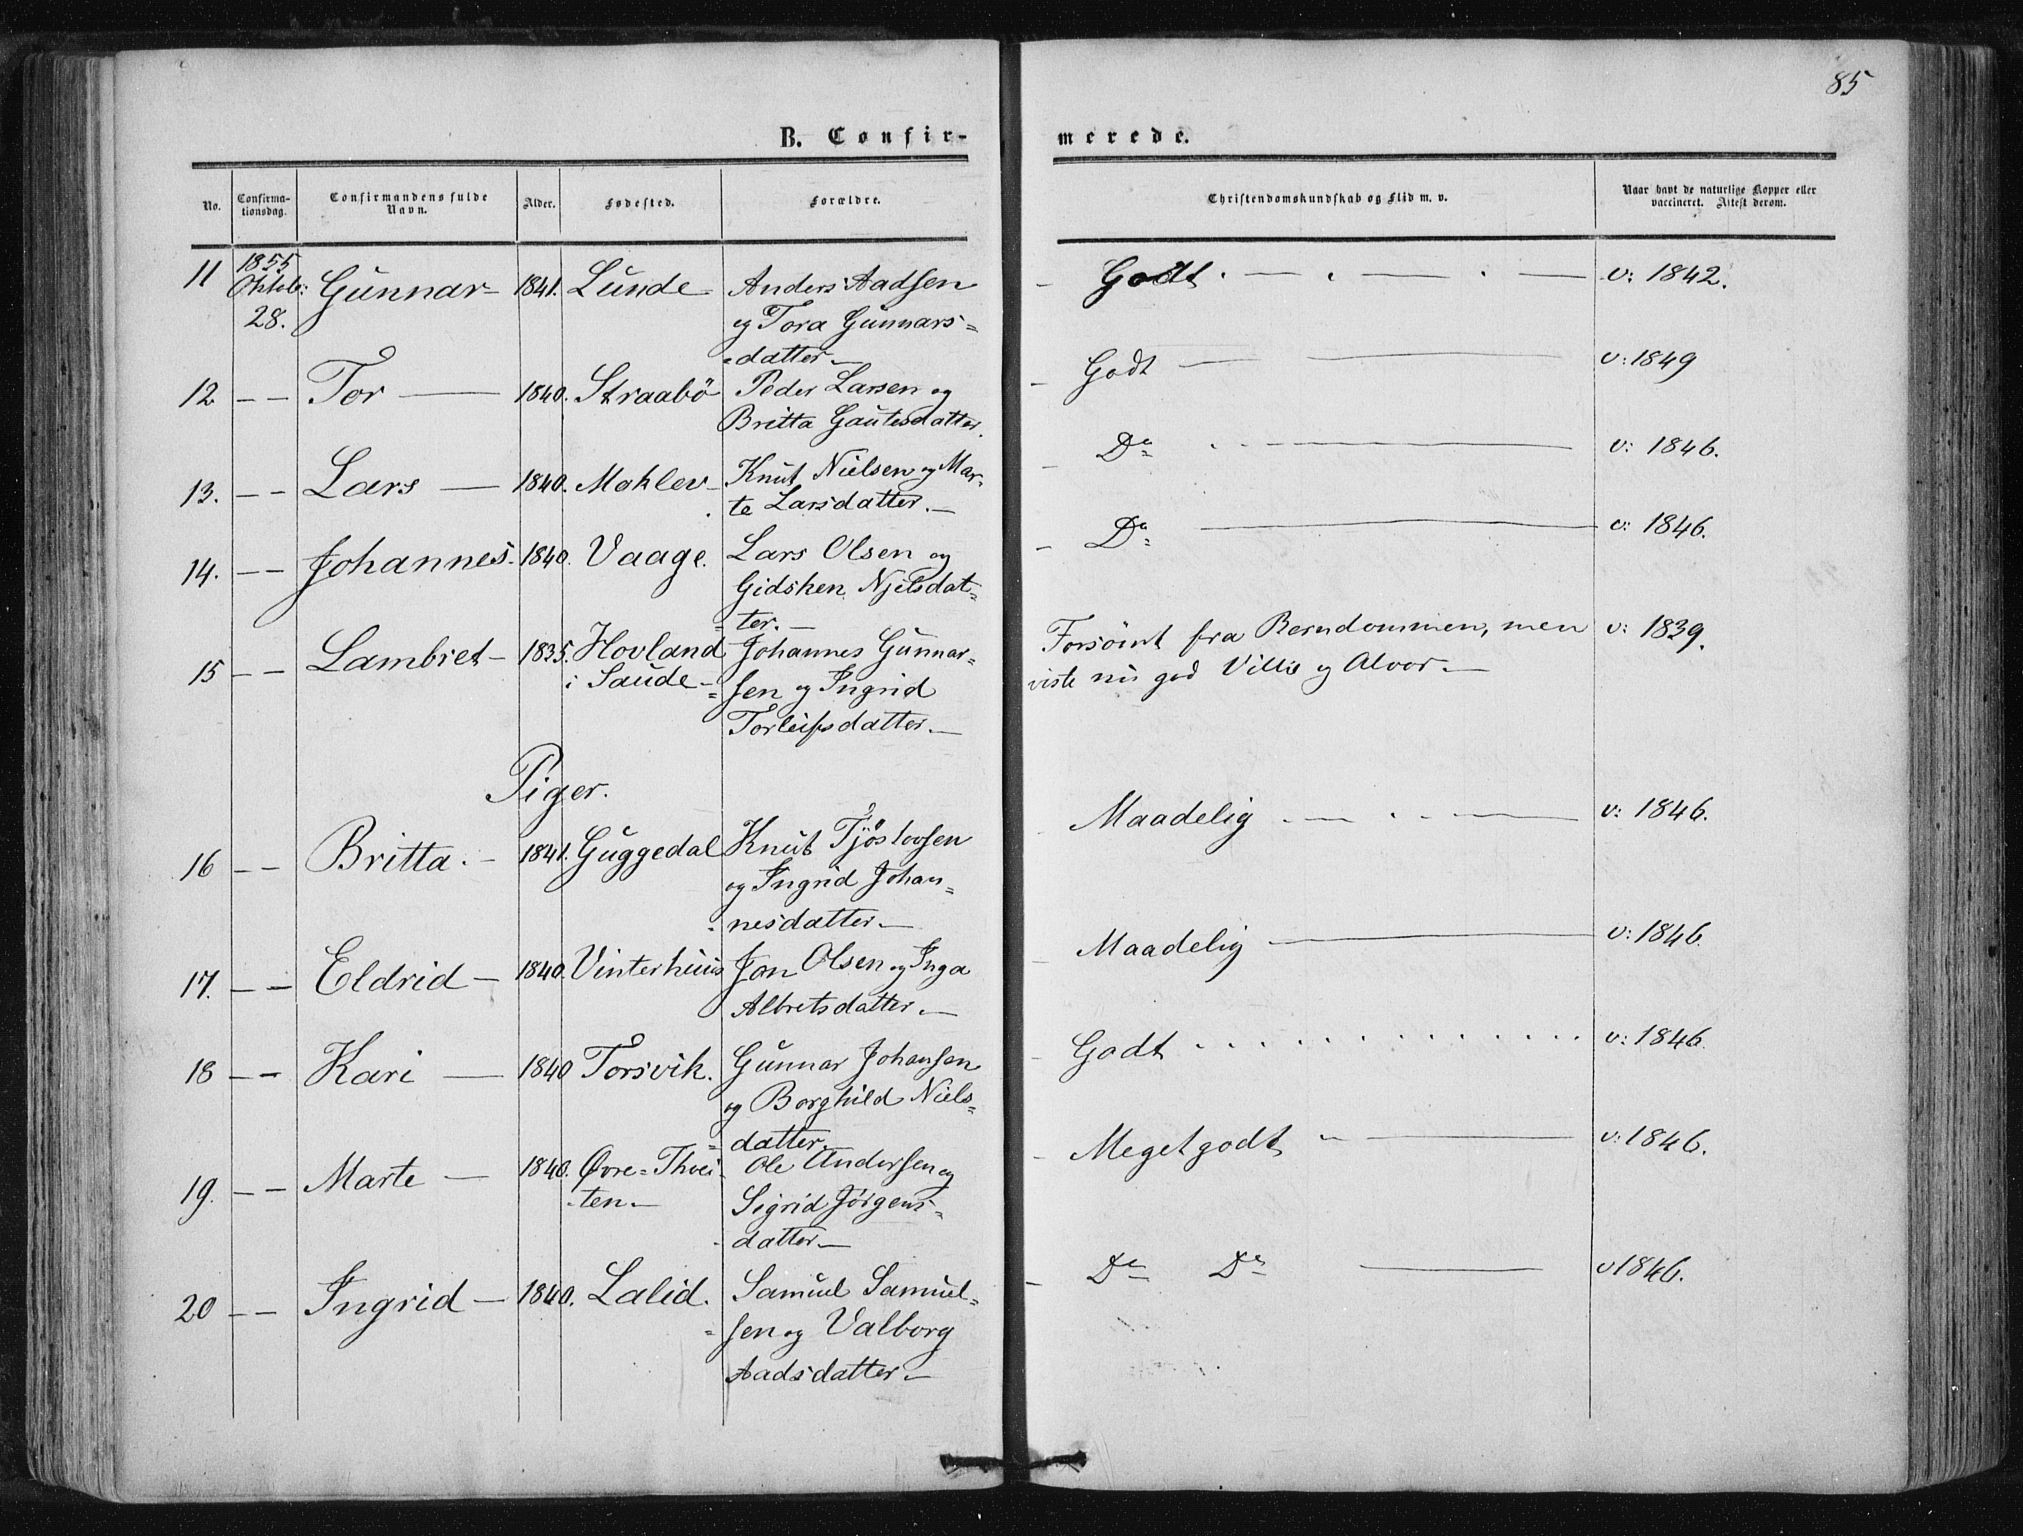 85
B. Confir-
merede.
No.
Confirma-
tionsdag.
Confirmandens fulde
Navn.
Alder.
Fødested.
Forældre.
Christendomskundskab og Flid m. v.
Naar havt de naturlige Kopper eller
vaccineret. Attest derom.
11 1855 Oktob: 28. Gunnar 1841. Lunde Anders Aadsen Godt v: 1842.
og Tora Gunnars=
=datter
12 — — Tor 1840. Straabö Peder Larsen og Godt v: 1849
Britta Gautesdatter.
13. — — Lars 1840. Moklev Knut Nielsen og Mar- Do v: 1846.
te Larsdatter.
14. — — Johannes 1840. Vaage. Lars Olsen og Do v: 1846.
Gidsken Njelsdat=
=ter.
15 — — Lambret 1835. Hovland Johannes Gunnar- Forsömt fra Barndommen, men v: 1839.
i Saude = sen og Ingrid viste nu god Villie og Alvor.
Torleifsdatter.
Piger.
16 — — Britta. 1841. Guggedal Knut Tjöslovsen Maadelig v: 1846.
og Ingrid Johan=
nesdatter
17. — — Eldrid 1840. Vinterhuus Jon Olsen og Inga Maadelig v: 1846
Albretsdatter.
18 — — Kari 1840 Torsvik. Gunnar Johansen Godt v: 1846.
og Borghild Niels=
=datter.
19. — — Marte 1840. Øvre=Thvei- Ole Andersen og Meget godt v: 1846.
-ten Sigrid Jörgens-
datter
20 — — Ingrid 1840. Lalid. Samuel Samuel= Do Do v 1846.
=sen og Valborg
Aadsdatter